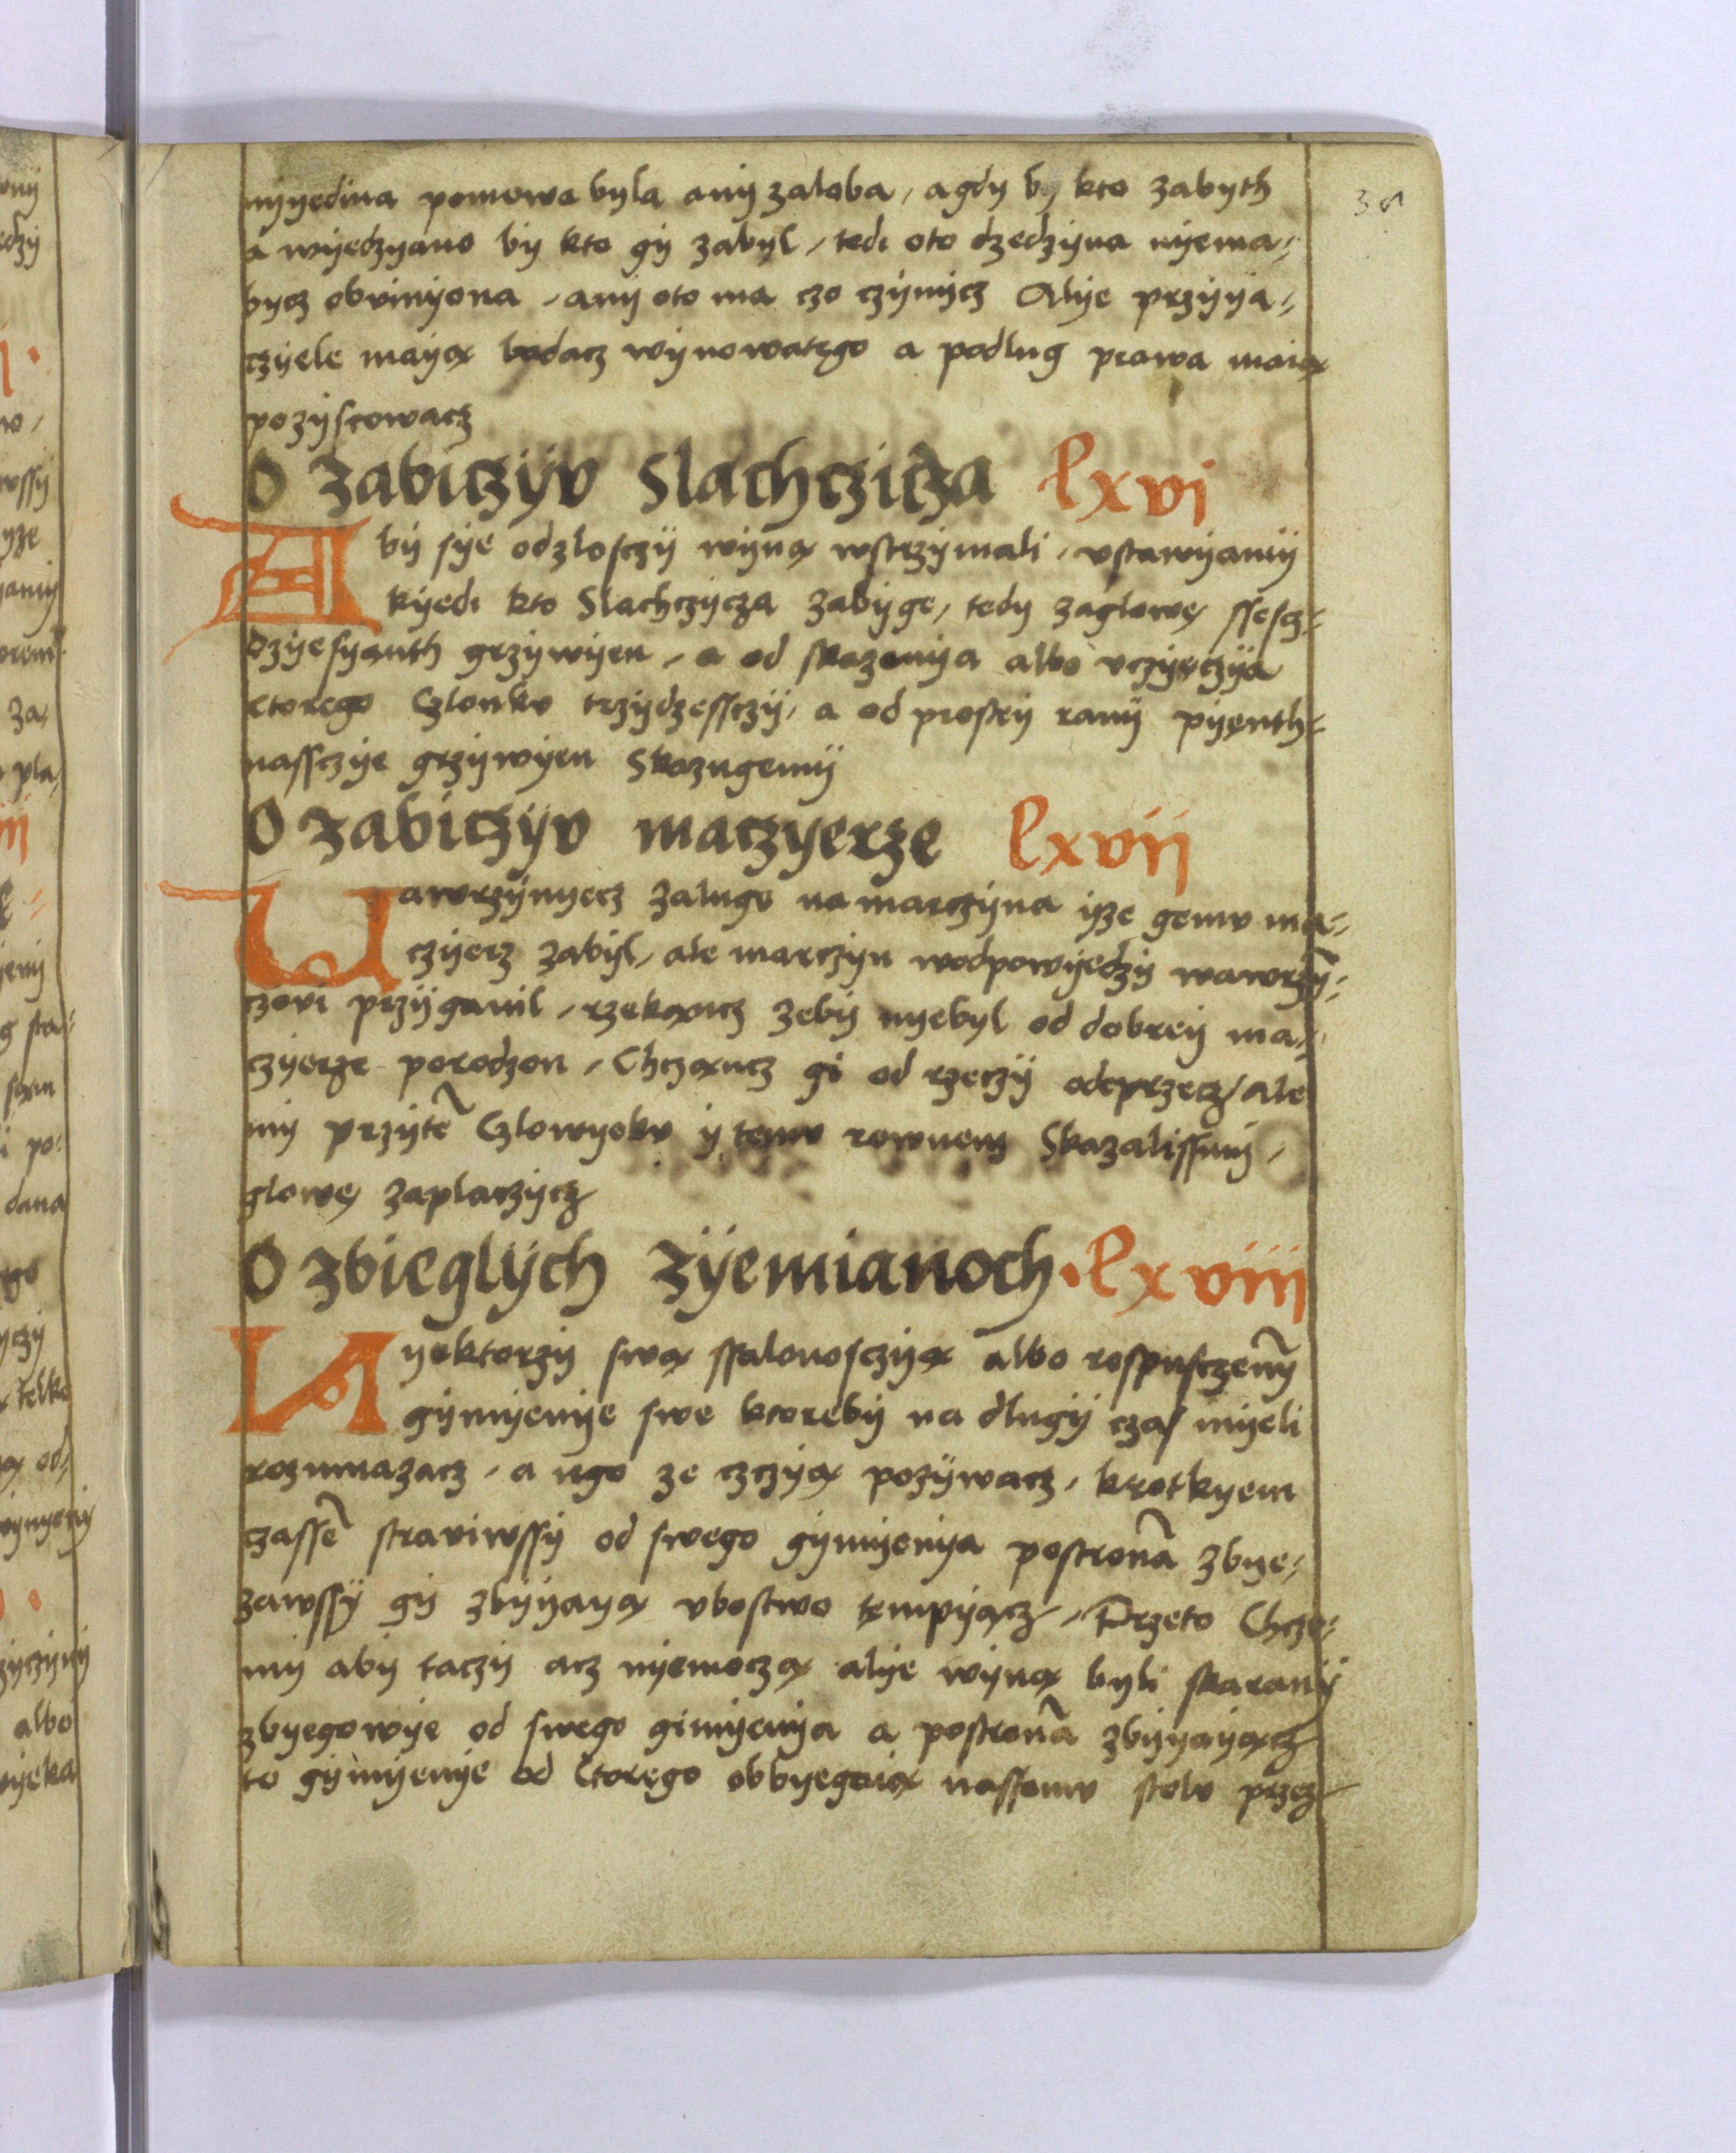 nyyedina pomowa byla any zaloba, agdy by kto zabyth
a wyedzyano by kto gy zabyl, tedi oto dzedzyna nyema⸗
bycz obvinyona, any oto ma czo czynycz Alye przyya⸗
czyele mayą badacz wynowatego a podlug prawa maią
pozyscowacz
O zabiczyv Slachczicza lxvi
Aby sye odzlosczÿ wyną wstrzymali, vstawyamÿ
kyedi kto Slachczycza zabyge, tedy zaglowę ssescz⸗
dzyesyanth grzywyen, a od skazenya albo vczyęczÿa
ctorego Czlonkv trzydzessczÿ, a od prostey ranÿ pyenth⸗
nassczye grzywyen Skazugemÿ
O zabiczyv maczyerze lxvii
Wawrzynyecz zaluge na marczyna ÿze gemv ma⸗
czyerz zabyl, ale marczyn wodpowyedzy wawrzy̅⸗
czovi przyganil, rzekąncz zeby nyebyl od dobrey ma⸗
czyerze porodzon, Chcząncz gi od rzeczÿ odeprzecz, ale
my przyte̅ Czlowyekv y temv rownem Skazalissmy,
glowę zaplaczycz
O zbieglych zÿemianoch · lxviii
Nyektorzy swą ssalonosczyą albo rospusczeny̅
gymyenye swe ktoreby na dlugy czas myeli
rozumazacz, a ngo ze czczyą pozywacz, krotkyem
czasse̅ straviwssy od swego gymyenya postrona̅ zbye⸗
zawssy gy zbyyayą vbostwo tempyącz, Przeto Chcze⸗
my aby taczy acz nyemoczą alye wyną byli skarany
zbyegowye od swego gimyenya a postrona̅ zbyyayącz
to gymyenye od Ctorego obbyegaią nassemv stolv przez